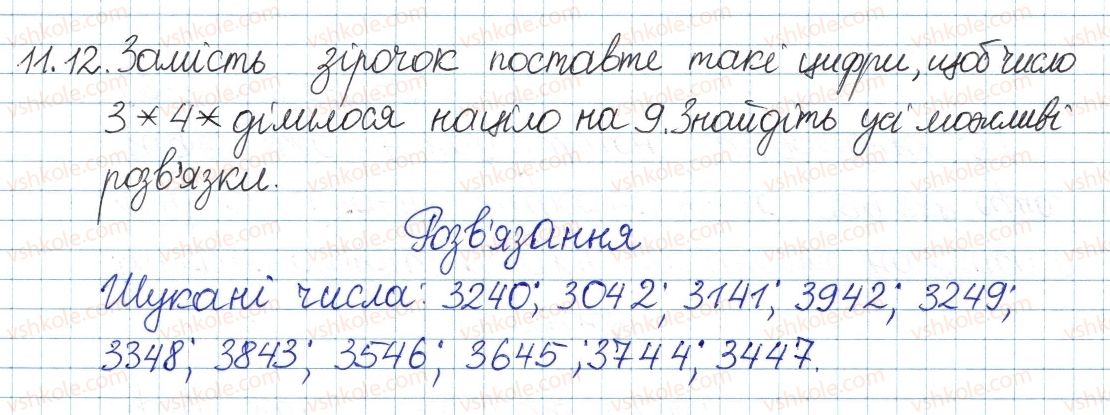 11.12. Замість зірочок поставте такі цифри, щоб число
3*4* ділилося націло на 9. Знайдіть усі можливі
розв'язки.
Розв'язання
Шукані числа: 3240; 3042; 3141; 3942; 3249;
3348; 3843; 3546; 3645; 3744; 3447.